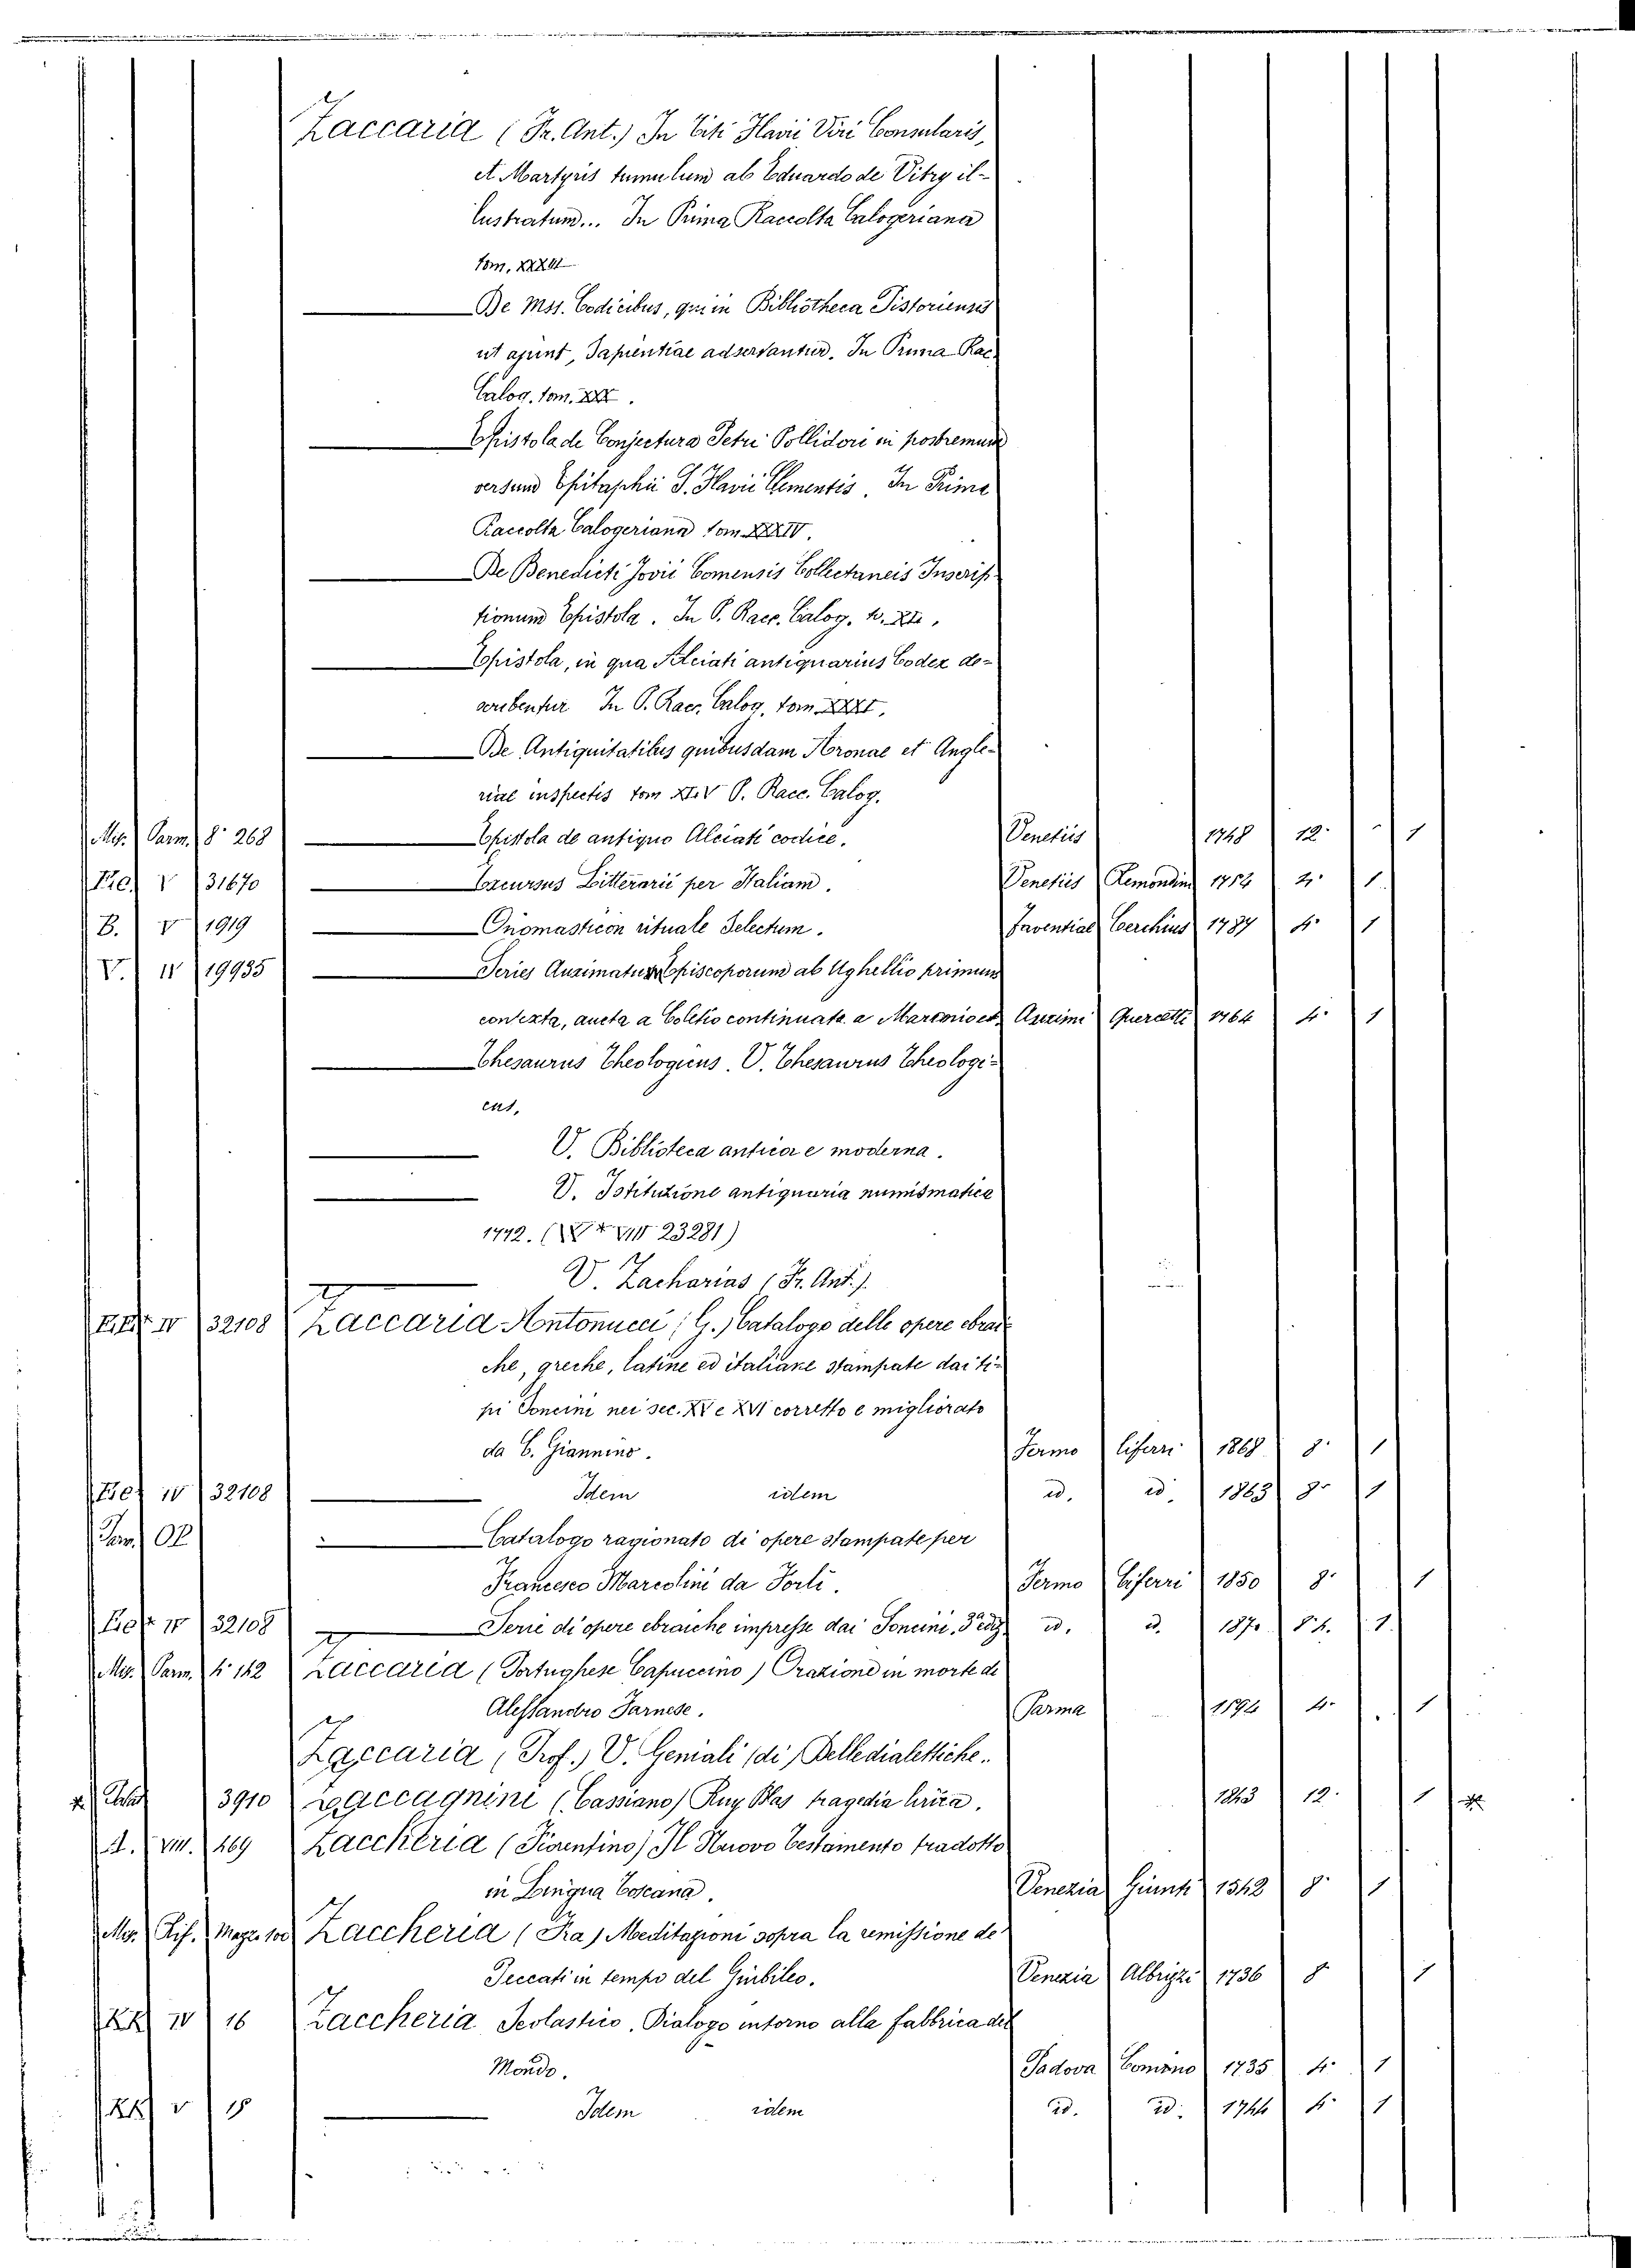 Zaccaria (Fr. Ant.) In Titi Flavii Viri Consularis,
et Martyris tumulum ab Eduardo de Vitry il-
lustratum... In Prima Raccolta Calogeriana
tom.
De Mss. Codicibus, qui in Bibliotheca Pistoriensis
ut ajunt, Sapientiae adservantur. In Prima Rac.
Calog. tom.
Epistola de Conjectura Petri Pollidori in postremum
versum Epitaphii S. Flavii Clementis. In Prima
Raccolta Calogeriana tom. XXXIV.
De Benedicti Jovii Comensis Collectaneis Inscrip-
tionum Epistola. In P. Racc. Calog. t.
Epistola, in qua Alciati antiquarius Codex de-
scribentur In P. Racc. Calog. tom.
De Antiquitatibus quibusdam Aronae et Angle-
riae inspectis tom P. Racc. Calog.
Mis. Parm. 8° 268 Epistola de antiquo Alciati codice. Venetiis 1748 12° 1
V 31670 Excursus Litterarii per Italiam. Venetiis Remondini 1754 4° 1
B. V 1919 Onomasticon rituale Selectum. Faventiae 1787 4° 1
V. IV 19935 Series Auximatum Episcoporum ab Ughellio primum
contexta, aucta a Coletio continuata a Auximi Quercetti 1764 4° 1
Thesaurus Theologicus. V. Thesaurus Theologi-
cus.
V. Biblioteca antica e moderna.
V. Istituzione antiquaria numismatica
1772. ( VIII 23281)
V. Zacharias (Fr. Ant.)
IV 32108 Zaccaria Antonucci (G.) Catalogo delle opere ebrai-
che, greche, latine ed italiane stampate dai ti-
pi Soncini nei sec. XV e XVI corretto e migliorato
da C. Giannino. Fermo Ciferri 1868 8° 1
IV 32108 Idem idem id. id. 1863 8° 1
Catalogo ragionato di opere stampate per
Francesco Marcolini da Forlì. Fermo Ciferri 1850 8° 1
IV 32108 Serie di opere ebraiche impresse dai Soncini. id. id. 1870 1
Mis. Parm. 4° 142 Zaccaria (Portughese Capuccino) Orazione in morte di
Alessandro Farnese. Parma 1592 4° 1
Zaccaria (Prof.) V. Geniali (di) Belle dialettiche.
3910 Zaccagnini (Cassiano) Ruy Blas tragedia lirica. 1843 12° 1
A. VIII. 469 Zaccheria (Fiorentino) Il Nuovo Testamento tradotto
in Lingua Toscana. Venezia Giunti 1542 8° 1
Mis. Rif. Zaccheria (Fra) Meditazioni sopra la remissione de'
Peccati in tempo del Giubileo. Venezia Albrizzi 1736 8 1
XX IV 16 Zaccheria Scolastico. Dialogo intorno alla fabbrica del
Mondo. Padova Comino 1735 4° 1
XX V 15 Idem idem id. id. 1744 4° 1